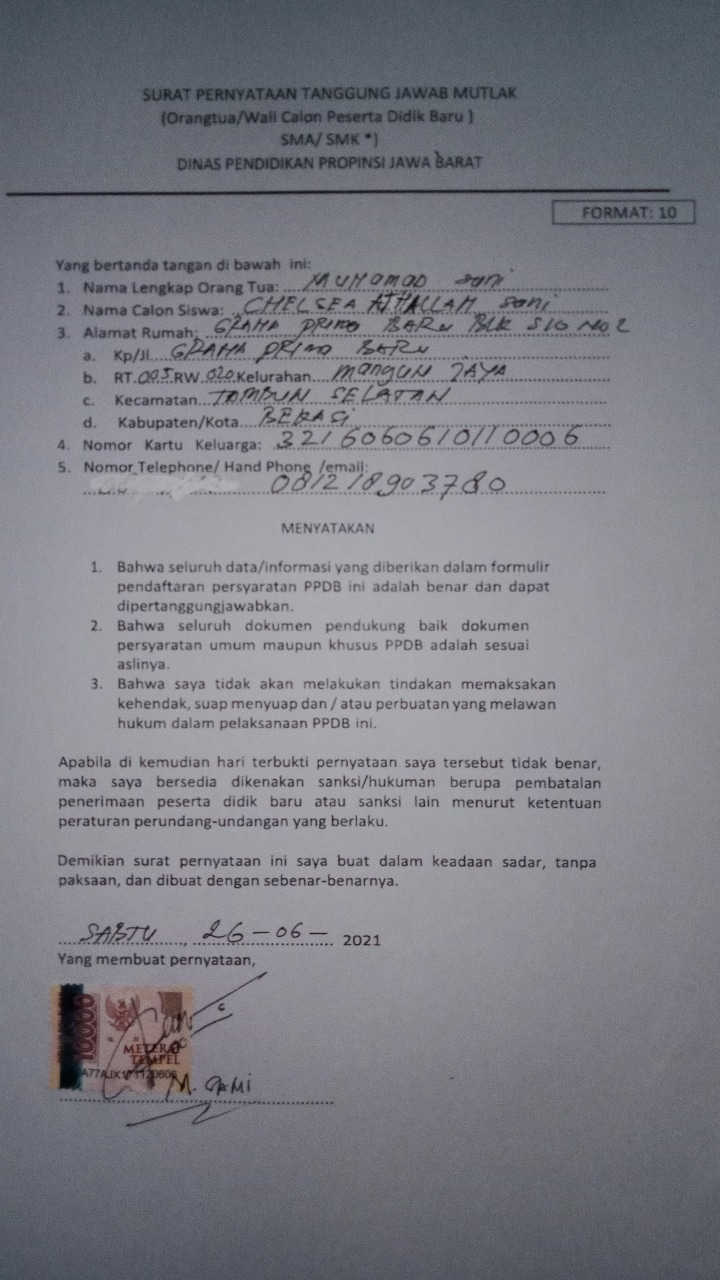 SURAT PERNYATAAN TANGGUNG JAWAB MUTLAK
(Orangtua/Wali Calon Peserta Didik Baru )
SMA/ SMK *)
DINAS PENDIDIKAN PROPINSI JAWA BARAT
FORMAT: 10
Yang bertanda tangan di bawah ini:
1. Nama Lengkap Orang Tua: MUHAMAD Sani
2. Nama Calon Siswa: CHELSEA ATHALLAH Sani
3. Alamat Rumah: GRAHA PRIMA BARU BLK S16 NO 2
a. Kp/Jl. GRAHA PRIMA BARU
b. RT.005.RW.020.Kelurahan... MANGUN JAYA
c. Kecamatan... TAMBUN SELATAN
d. Kabupaten/Kota... BEKASI
4. Nomor Kartu Keluarga: 3216060610110006
5. Nomor Telephone/ Hand Phone /email:
081218903780
MENYATAKAN
1. Bahwa seluruh data/informasi yang diberikan dalam formulir
pendaftaran persyaratan PPDB ini adalah benar dan dapat
dipertanggungjawabkan.
2. Bahwa seluruh dokumen pendukung baik dokumen
persyaratan umum maupun khusus PPDB adalah sesuai
aslinya.
3. Bahwa saya tidak akan melakukan tindakan memaksakan
kehendak, suap menyuap dan / atau perbuatan yang melawan
hukum dalam pelaksanaan PPDB ini.
Apabila di kemudian hari terbukti pernyataan saya tersebut tidak benar,
maka saya bersedia dikenakan sanksi/hukuman berupa pembatalan
penerimaan peserta didik baru atau sanksi lain menurut ketentuan
peraturan perundang-undangan yang berlaku.
Demikian surat pernyataan ini saya buat dalam keadaan sadar, tanpa
paksaan, dan dibuat dengan sebenar-benarnya.
SABTU, 26-06- 2021
Yang membuat pernyataan,
10000
METERAI
TEMPEL
M. SANI